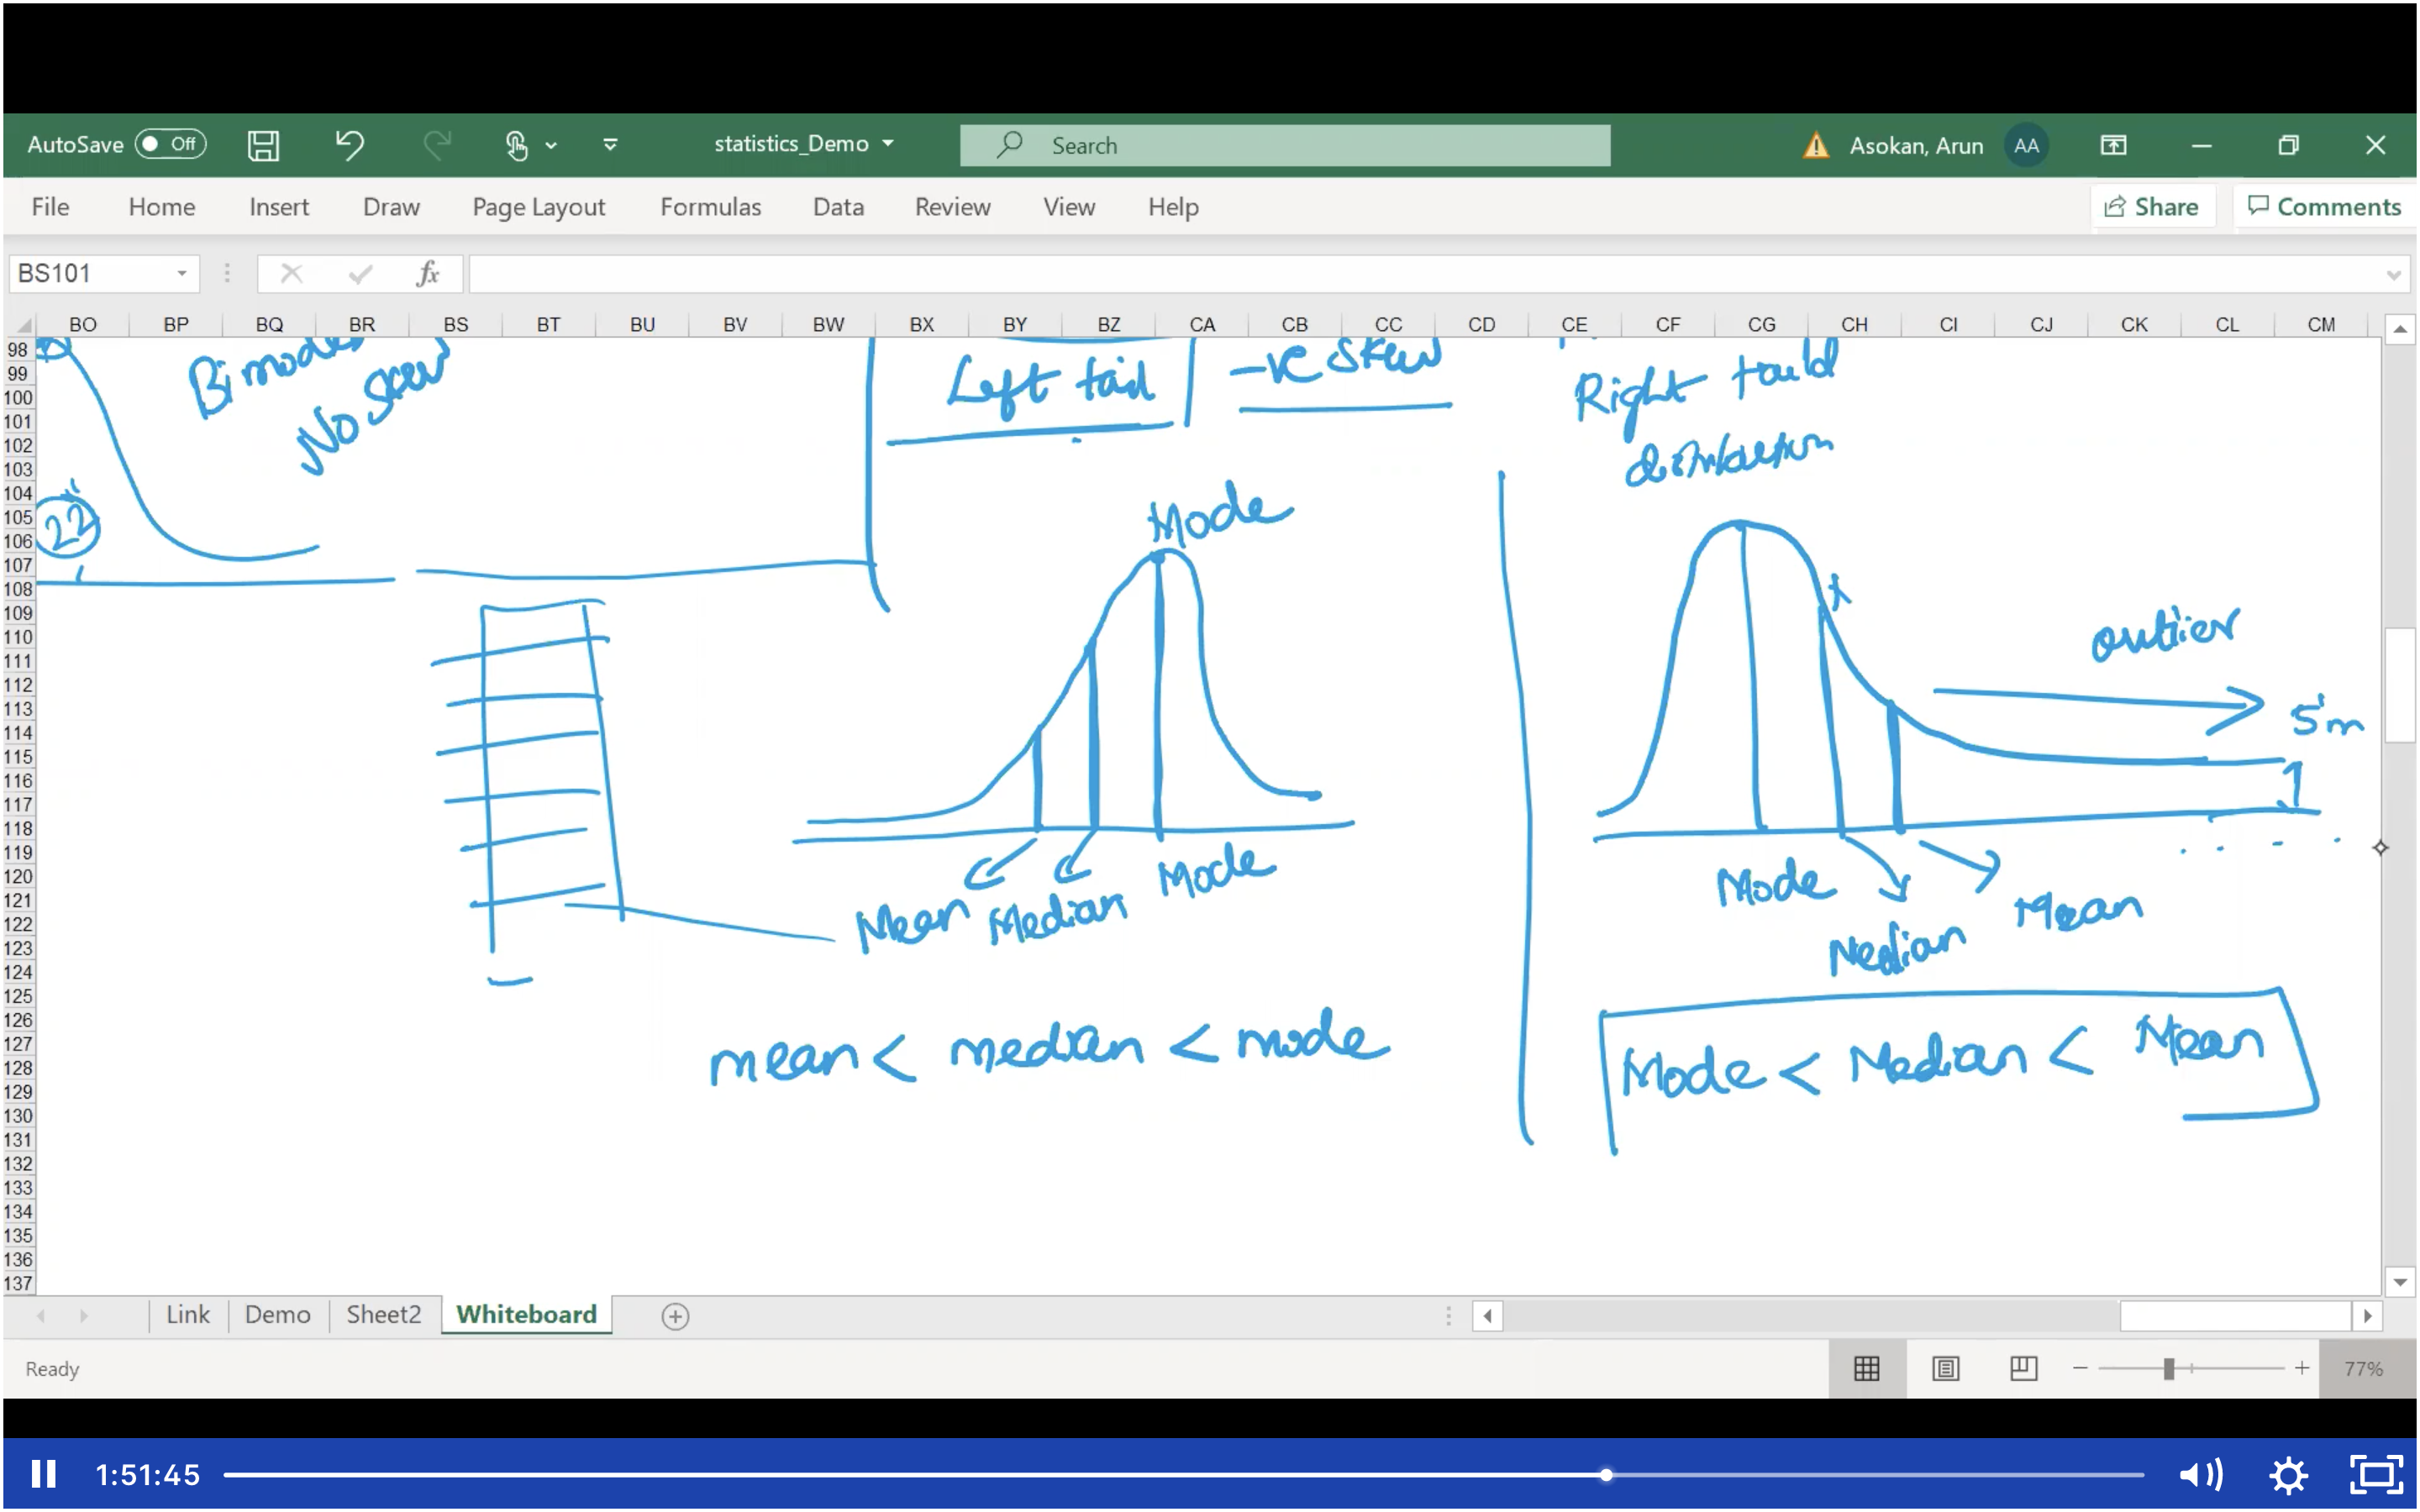 AutoSave Off statistics_Demo Search Asokan, Arun AA
File Home Insert Draw Page Layout Formulas Data Review View Help Share Comments
BS101 fx
BO BP BQ BR BS BT BU BV BW BX BY BZ CA CB CC CD CE CF CG CH CI CJ CK CL CM
98
99
100
101
102
103
104
105
106
107
108
109
110
111
112
113
114
115
116
117
118
119
120
121
122
123
124
125
126
127
128
129
130
131
132
133
134
135
136
137
Bimodal
No skew
22
Left tail
-ve skew
Right taild
distribution
Mode
Mean Median Mode
mean < median < mode
outlier
5m
1
Mode
Median
Mean
Mode < Median < Mean
Link Demo Sheet2 Whiteboard
Ready 77%
1:51:45